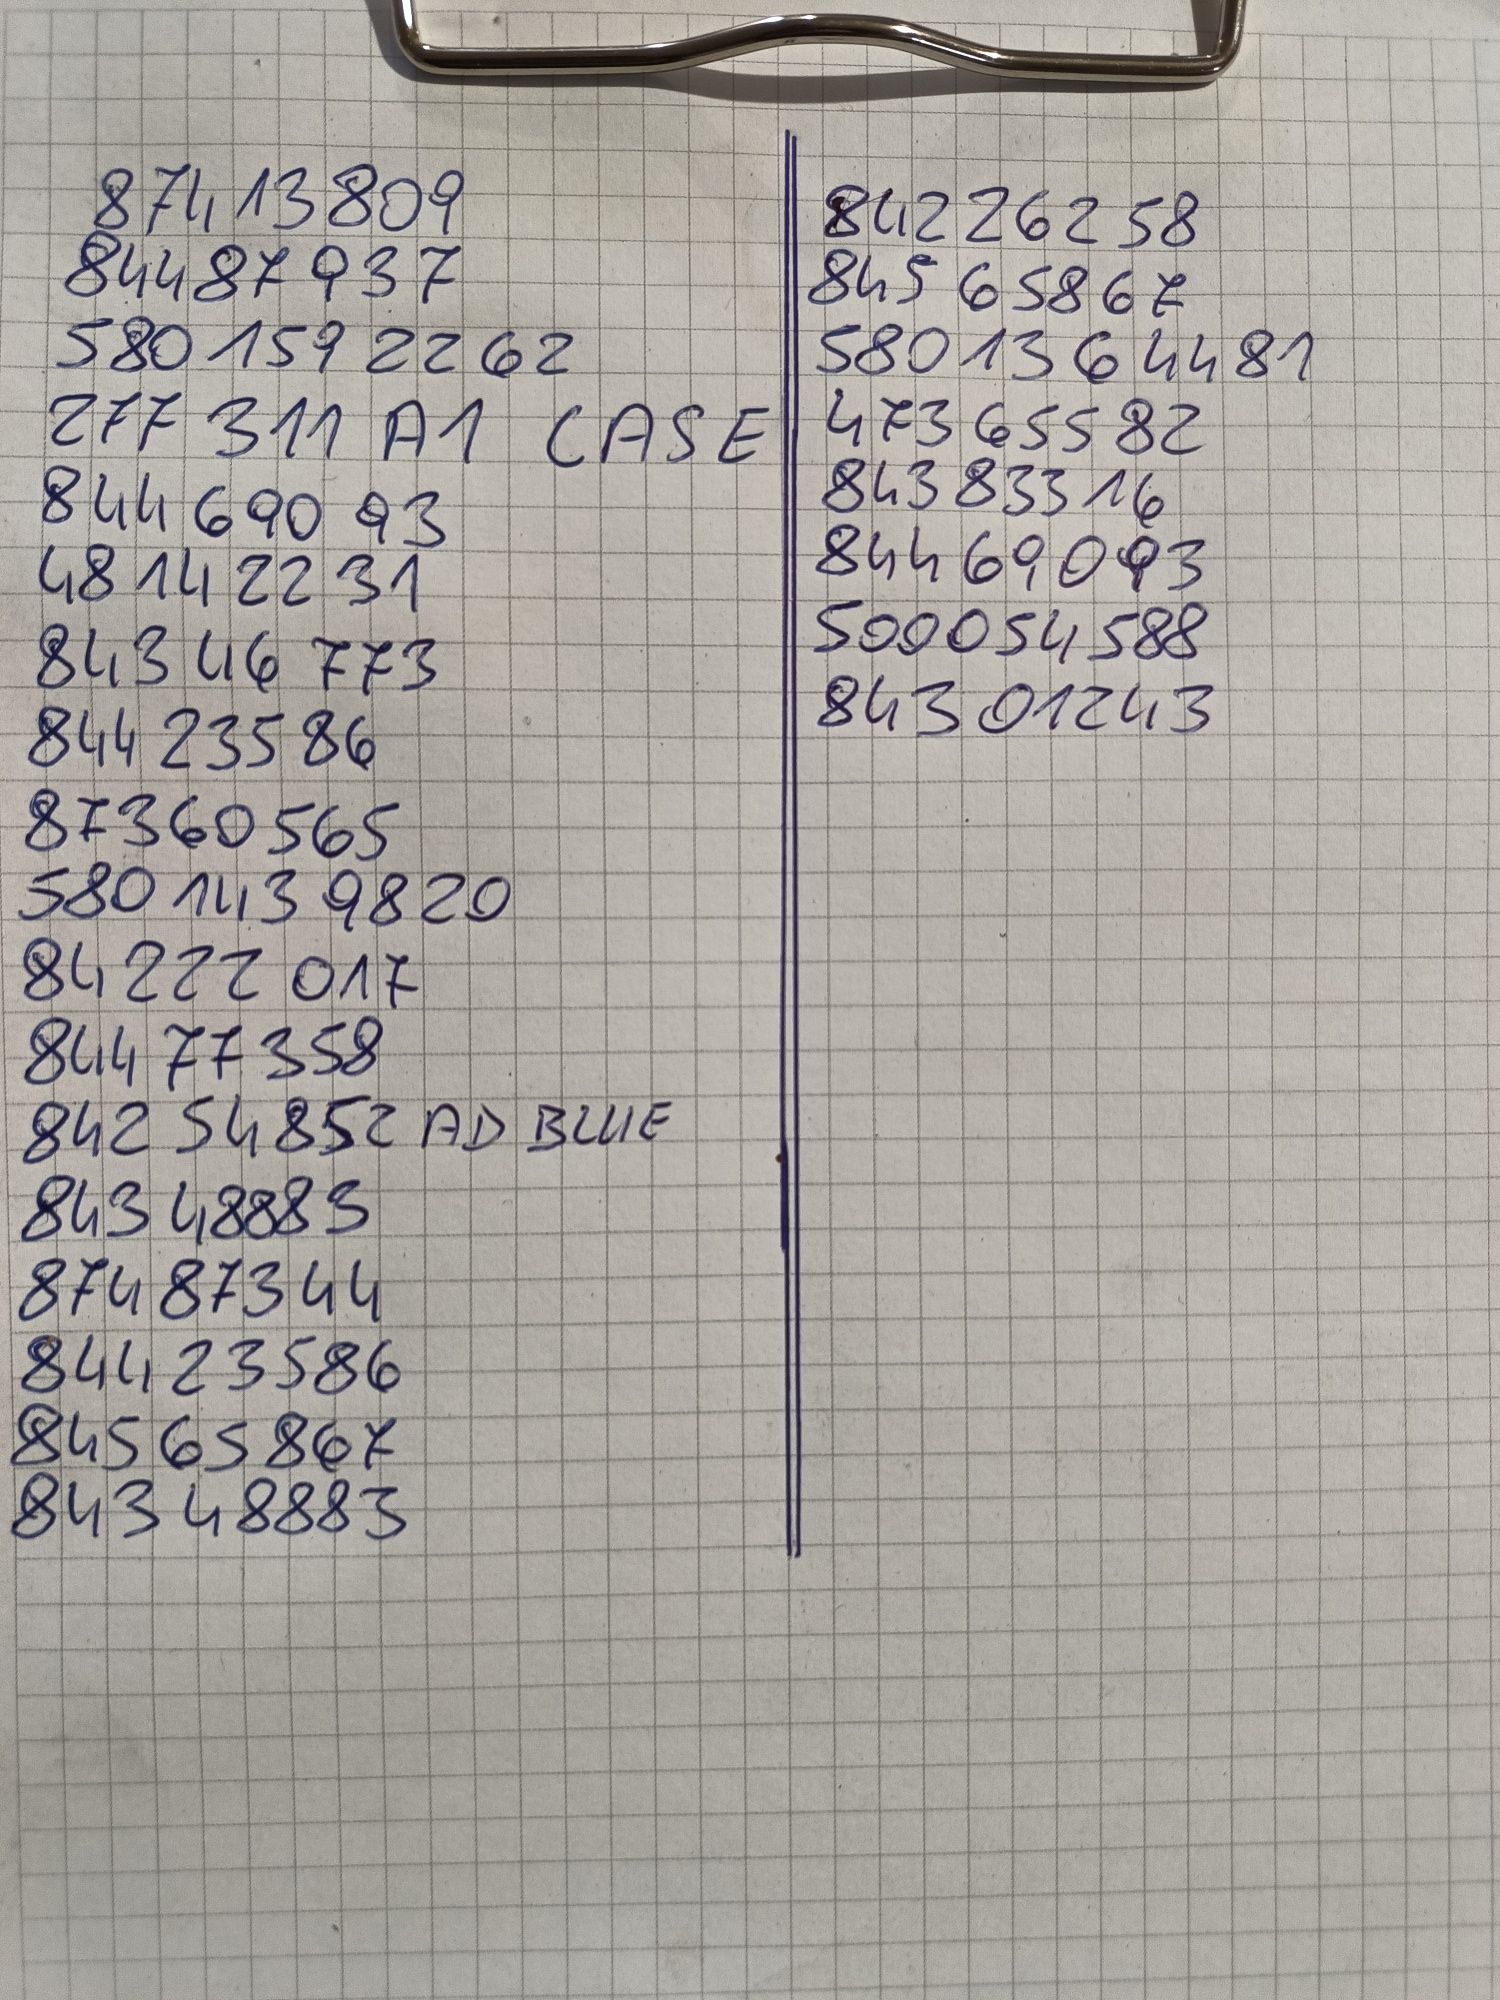 87413809
84487937
5801592262
277311A1 CASE
84469093
48142231
84346773
84423586
87360565
5801439820
84222017
84477358
84254852 AD BLUE
84348883
87487344
84423586
84565867
84348883
842226258
84565867
5801364481
47365582
84383316
84469093
500054588
84301243